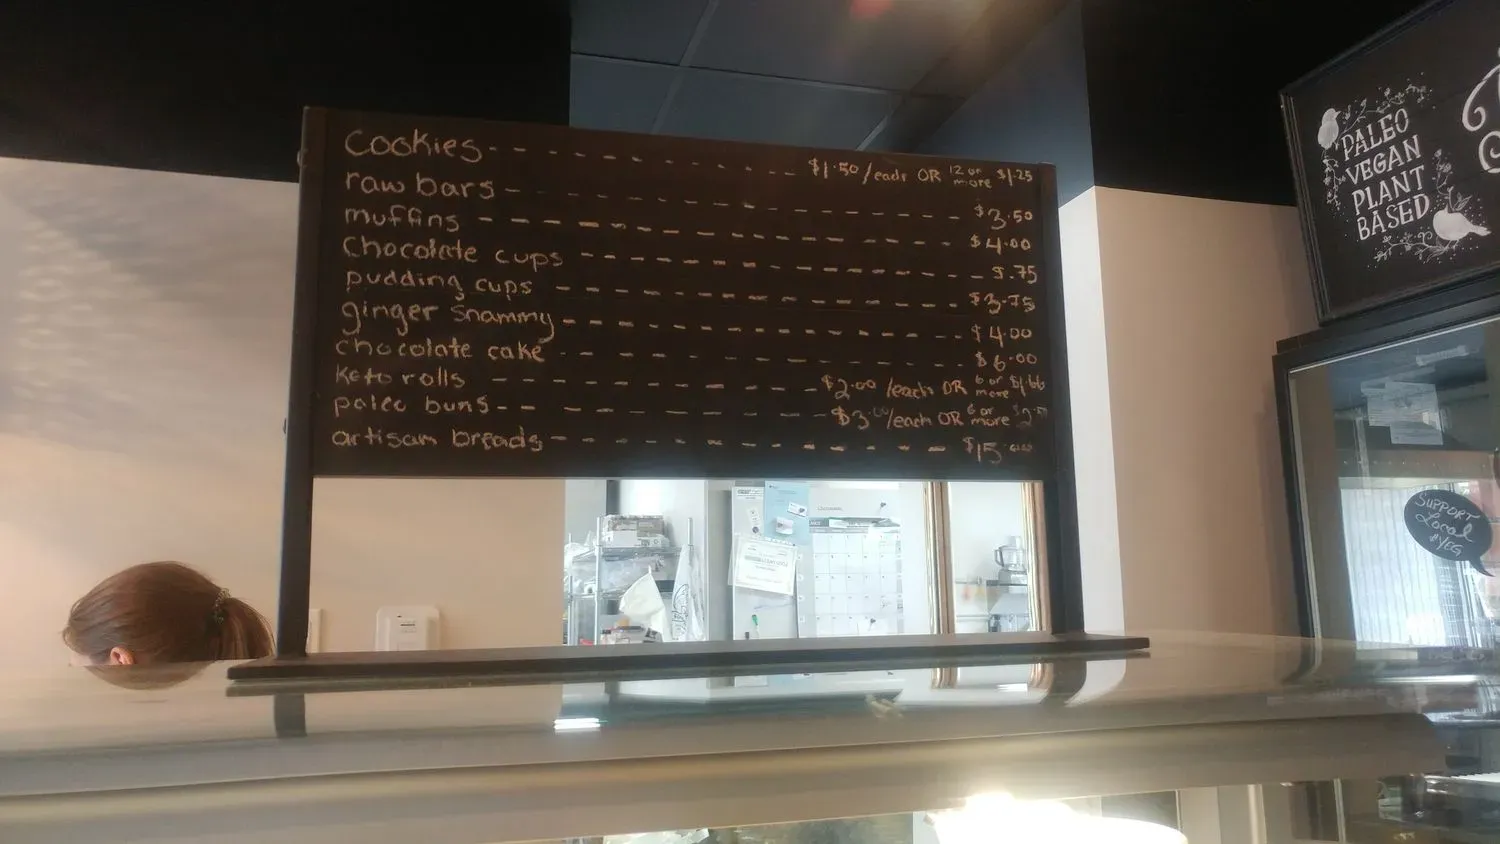 Cookies - - - - - - - - - $1.50/each OR 12 or more $1.25
raw bars - - - - - - - - - $3.50
muffins - - - - - - - - - $4.00
Chocolate cups - - - - - - - - - .75
pudding cups - - - - - - - - - $3.75
ginger snammy - - - - - - - - - $4.00
chocolate cake - - - - - - - - - $6.00
keto rolls - - - - - - - - - $2.00 /each OR 6 or more $1.66
paleo buns - - - - - - - - - $3.00/each OR 6 or more
artisan breads - - - - - - - - - $15.00
PALEO
VEGAN
PLANT
BASED
SUPPORT
Local
#YEG